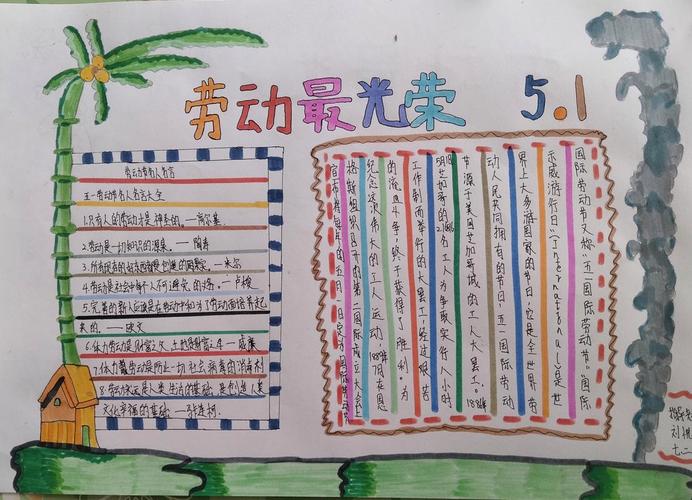 劳动最光荣 5.1
劳动节名人名言
五一劳动节名人名言大全
1.只有人的劳动才是神圣的。——高尔基
2.劳动是一切知识的源泉。——陶寿
3.所有现存的好东西都是创造的果实。——米尔
4.劳动是社会中每个人不可避免的义务。——卢梭
5.完善的新人应该是在劳动中和为了劳动而培养起
来的。——欧文
6.体力劳动是财富之父,土地是财富之母——威廉
7.体力劳动是防止一切社会病毒的消毒剂
8.劳动永远是人类生活的基础,是创造人类
文化幸福的基础——
国际劳动节又称“五一国际劳动节”“国际
示威游行日”(International)是世
界上大多数国家的节日,它是全世界劳
动人民共同拥有的节日,五一国际劳动
节源于美国芝加哥城的工人大罢工。188年
5月芝加哥的21.6万工人为争取实行八小时
工作制而举行的大罢工,经过艰苦
的流血斗争,终于获得了胜利。为
纪念这次伟大的工人运动,1889年7月在恩
格斯组织召开的第二国际成立大会上
宣布将每年的五月一日定为国际劳动节
七.二